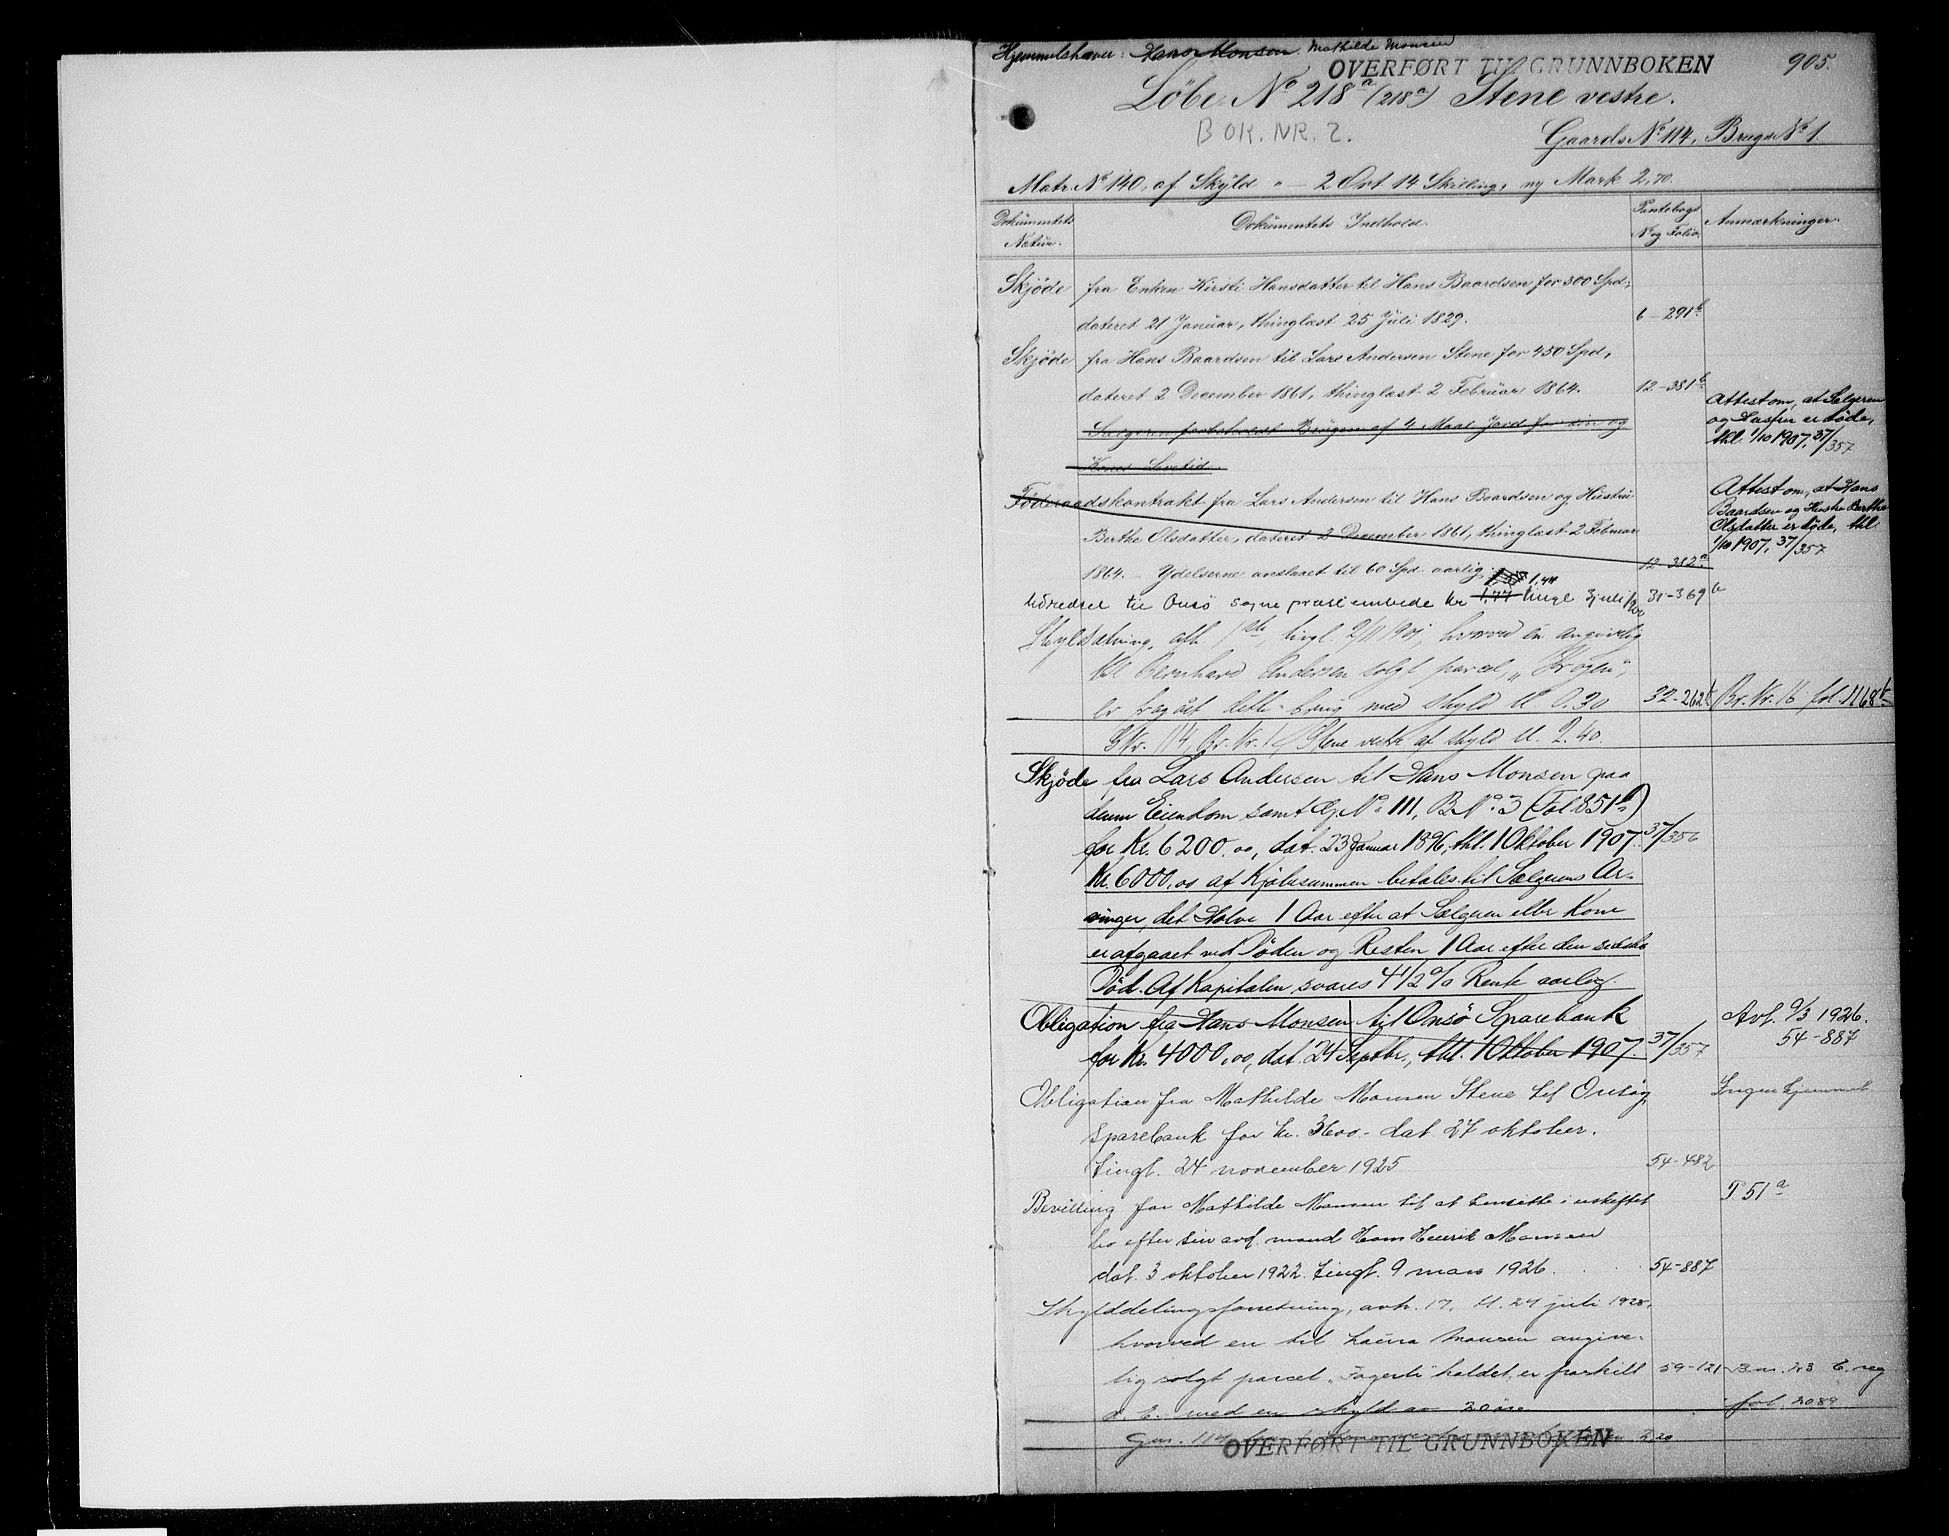 Hjemmelshaver: Hans Monsen. Mathilde Monsen
OVERFØRT TIL GRUNNBOKEN 905.
Löbe No 218a (218a) Stene vestre.
BOK. NR. 2.
Gaards No 114, Brugs No 1.
Matr. No 140, af Skyld " – 2 Ort 14 Skilling, ny Mark 2,70.
Dokümentets Natür. Dokümentets Indhold. Pantebogs No og Folio. Anmærkninger.
Skjöde fra Enken Kirsti Hansdatter til Hans Baardsen for 300 Spd,
dateret 21 Janüar, thinglæst 25 Jüli 1829. 6–291b
Skjöde fra Hans Baardsen til Lars Andersen Stene for 450 Spd,
dateret 2 December 1861, thinglæst 2 Febrüar 1864. 12–381b
Sælgeren forbeholdt Brügen af 4 Maal Jord for sin og
Kones Levetid.
Attest om, at Sælgeren
og Hustru er døde,
thl. 1/10 1907, 37/357
Föderaadskontrakt fra Lars Andersen til Hans Baardsen og Hüstrü
Berthe Olsdatter, dateret 2 December 1861, thinglæst 2 Februar
1864. – Ydelserne anslaaet til 60 Spd. aarlig. 12–382a
Attest om, at Hans
Baardsen og Hustru Berthe
Olsdatter er døde, thl.
1/10 1907, 37/357
Udredsel til Onsö sogneprestembede kr 1,77 1,44 tingl 3 juli 1900 31–369b
Skyldsætning, afh. tingl. 2/11 1901, hvorved en angivelig
til Bernhard Andersen solgt parcel "Krogen",
er fragået dette brug med skyld M 0.30 32–262b Br. Nr. 16 fol. 1168b
GNr. 114, Br. Nr. 1 Stene vestre af skyld M. 2.40.
Skjöde fra Lars Andersen til Hans Monsen paa
denne Eiendom samt G. No. 111, B. No. 3 (Fol. 851b)
for Kr. 6200,00, dat. 23 Januar 1896, thl. 1 Oktober 1907. 37/356
Kr. 6000,00 af Kjøbesummen betales til Sælgerens Ar-
vinger, det Halve 1 Aar efter at Sælgeren eller Kone
er afgaaet ved Døden og Resten 1 Aar efter den sidstes
Död. Af Kapitalen svares 4 1/2 % Rente aarlig.
Obligation fra Hans Monsen til Onsö Sparebank
for Kr. 4000,00, dat. 24 Septbr., thl. 1 Oktober 1907. 37/357
Avl. 9/3 1926.
54–887
Obligation fra Mathilde Monsen Stene til Onsøy
Sparebank for kr. 3600.- dat 27 oktober.
tingl. 24 november 1925 54–482
Ingen hjemmel
Bevilling for Mathilde Monsen til at hensitte i uskiftet
bo efter sin avd. mand Hans Henrik Monsen
dat. 3 oktober 1922. tingl. 9 mars 1926. 54–887
P. 51a
Skylddelingsforretning, avh. 17, tl. 24 juli 1928,
hvorved en til Laura Monsen angive-
lig solgt parcel "Fagerli" kaldet, er fraskilt 59–121 Bnr. 23 E. reg
d. E. med en skyld av 20 øre fol. 2089
Gnr. 114 2,20
OVERFØRT TIL GRUNNBOKEN